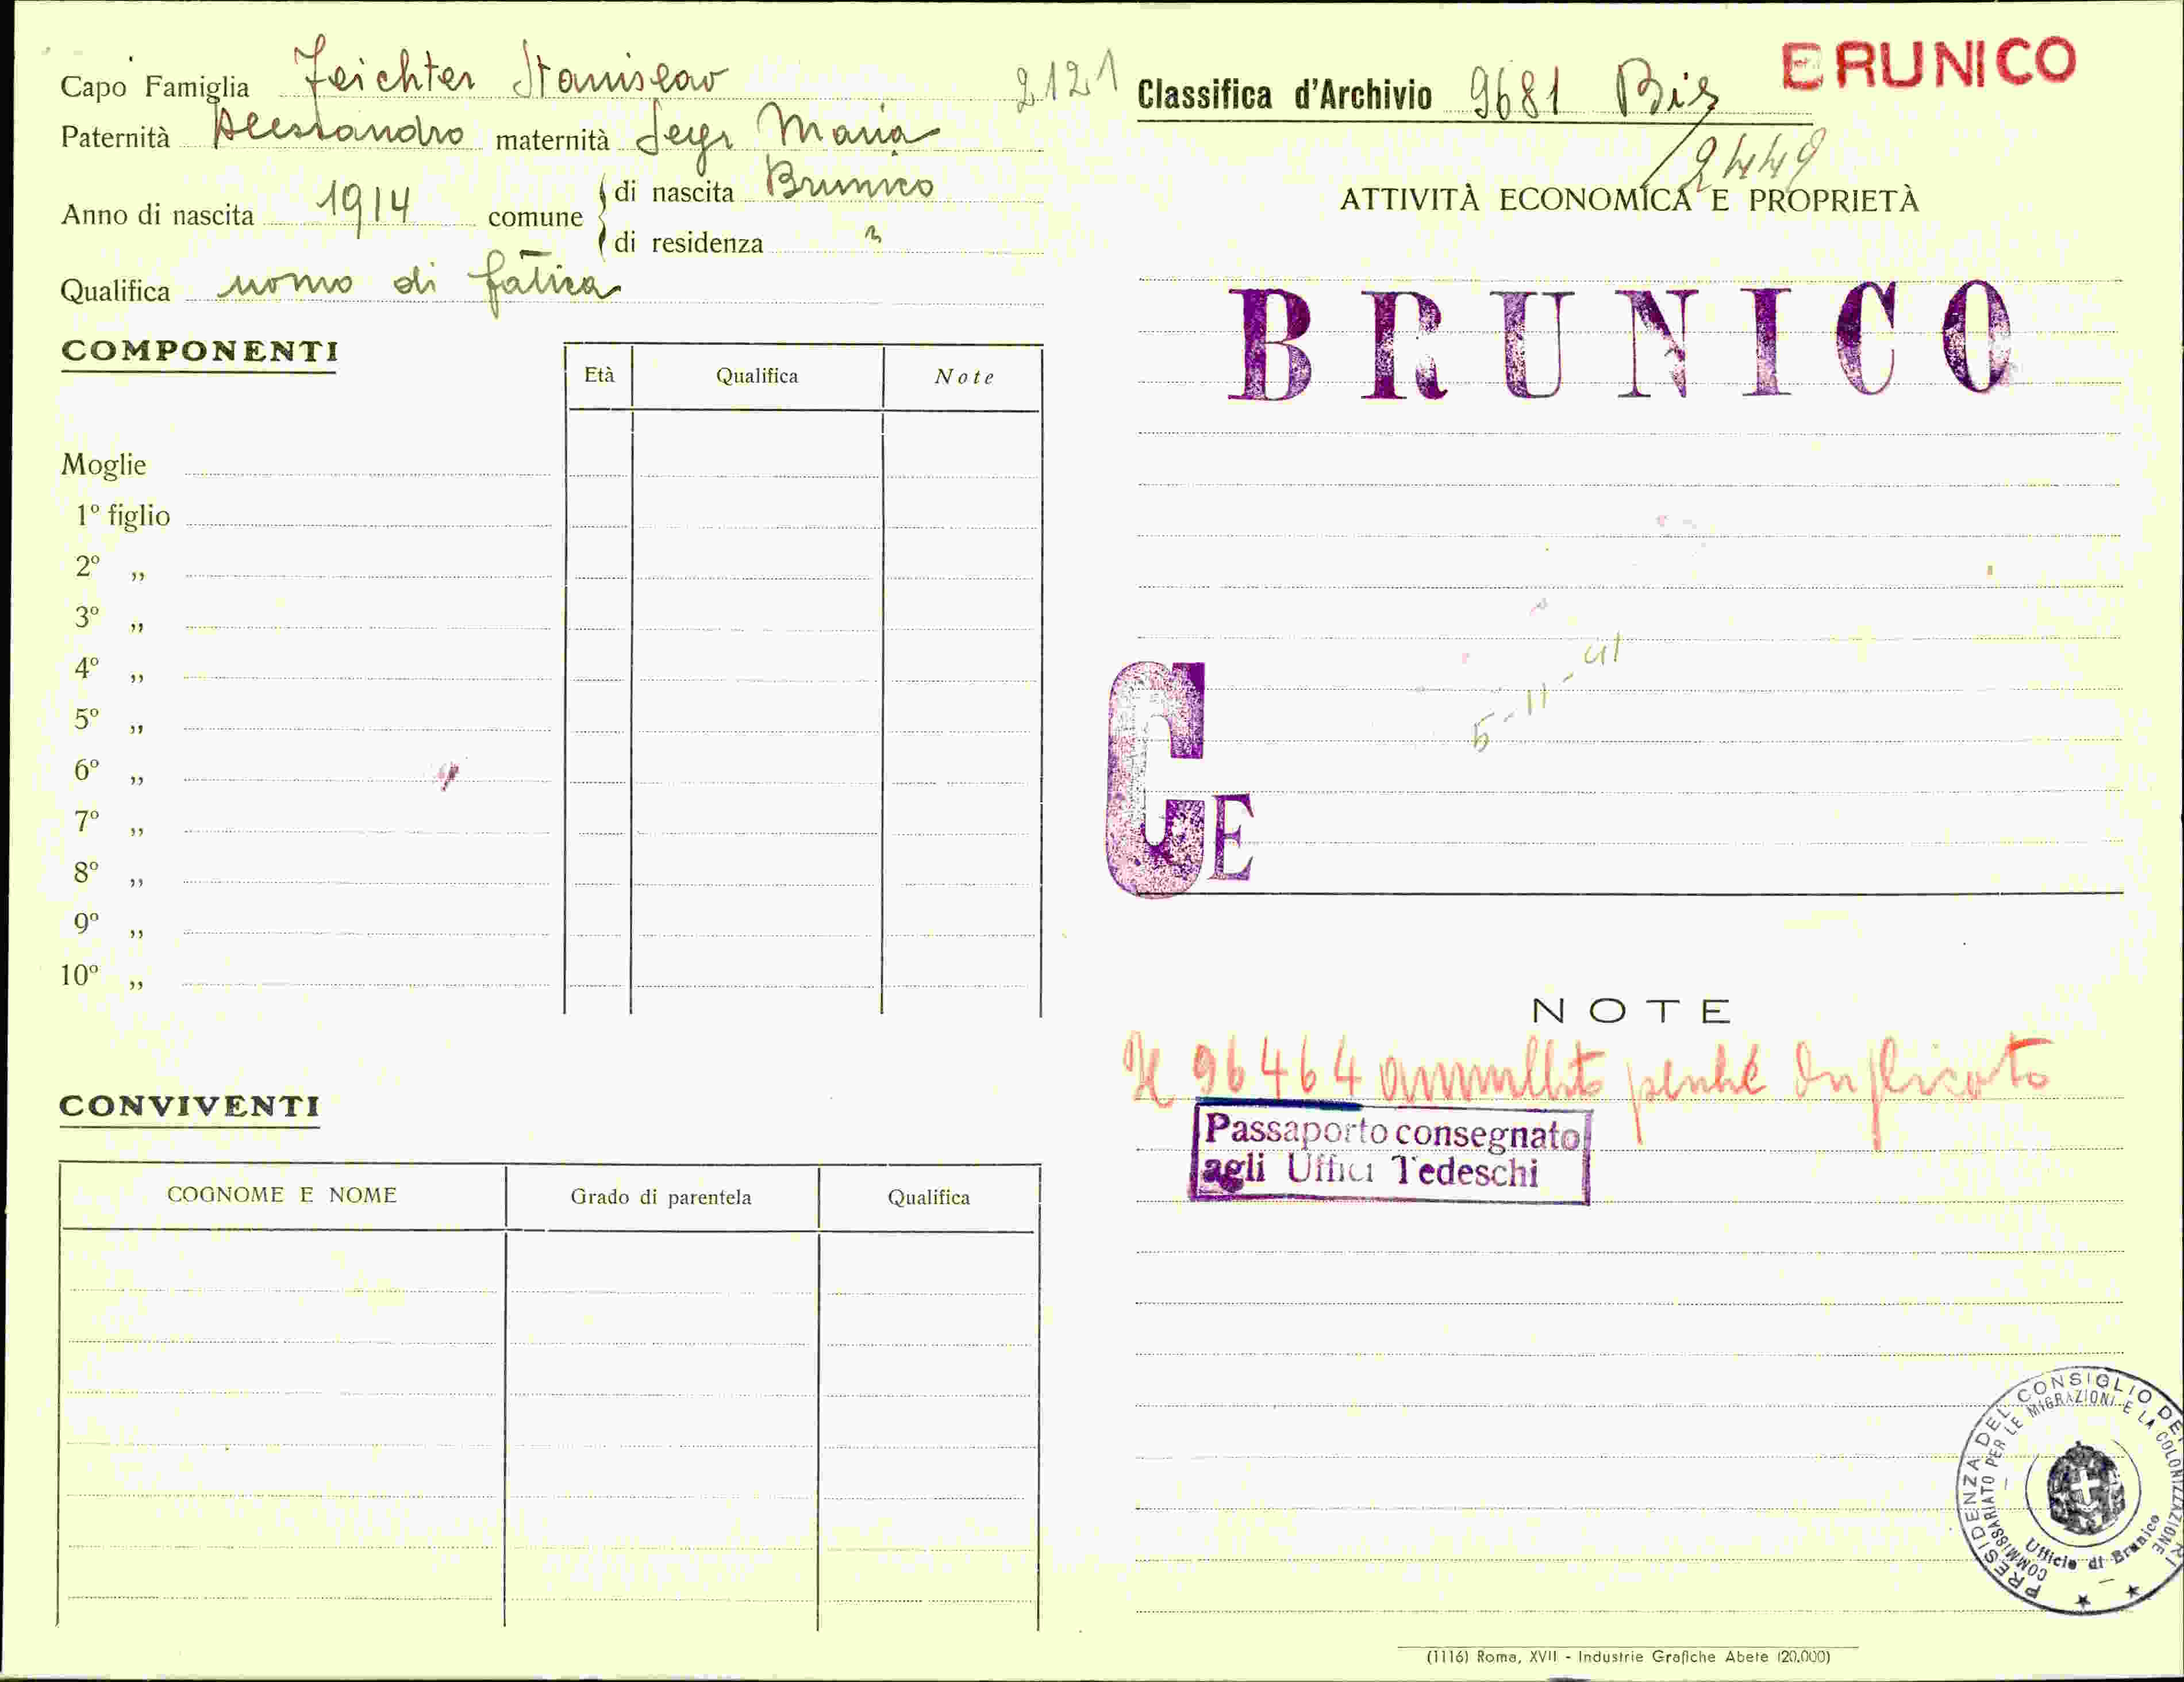 Capo Famiglia Feichter Stanislao 2121
Paternità Alessandro maternità Segr Maria
Anno di nascita 1914 comune di nascita Brunico
di residenza "
Qualifica uomo di fatica
COMPONENTI
Età Qualifica Note
Moglie
1º figlio
2º ,,
3º ,,
4º ,,
5º ,,
6º ,,
7º ,,
8º ,,
9º ,,
10º ,,
CONVIVENTI
COGNOME E NOME Grado di parentela Qualifica
BRUNICO
Classifica d'Archivio 9681 Bis
2449
ATTIVITÀ ECONOMICA E PROPRIETÀ
BRUNICO
5-11-41
CE
NOTE
Il 96464 annullato perché duplicato
Passaporto consegnato
agli Uffici Tedeschi
PRESIDENZA DEL CONSIGLIO DEI
COMMISSARIATO PER LE MIGRAZIONI E LA COLONIZZAZIONE
Ufficio di Brunico
(1116) Roma, XVII - Industrie Grafiche Abete (20.000)